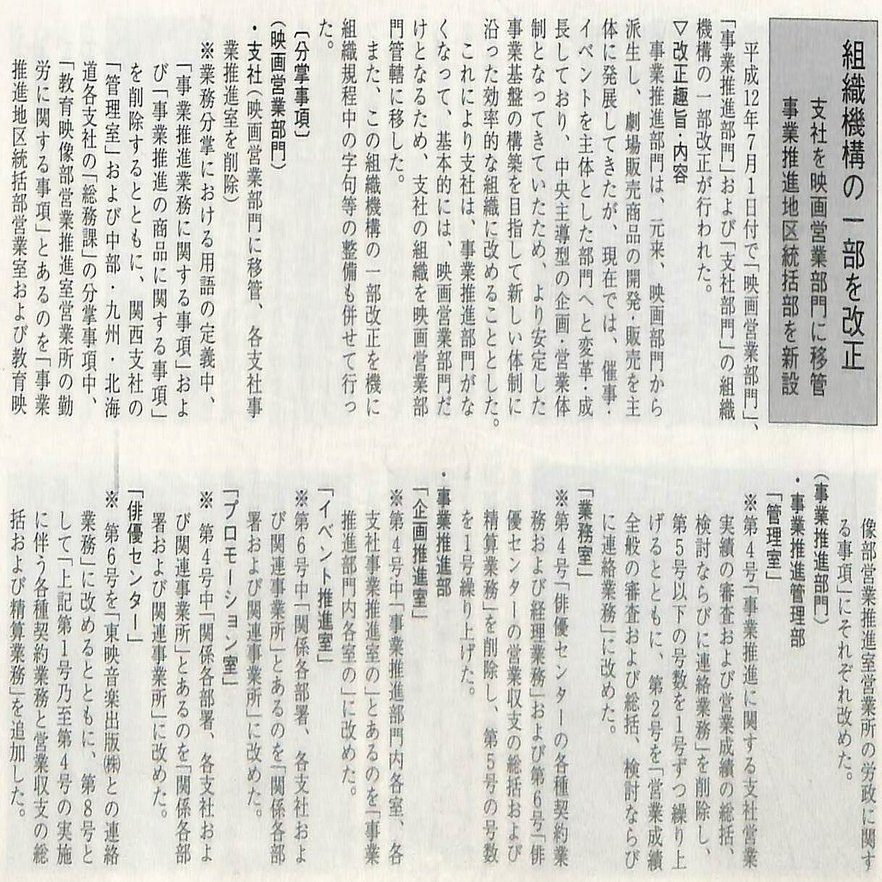 組織機構の一部を改正
支社を映画営業部門に移管
事業推進地区統括部を新設
平成12年7月1日付で「映画営業部門」、
「事業推進部門」および「支社部門」の組織
機構の一部改正が行われた。
▽改正趣旨・内容
事業推進部門は、元来、映画部門から
派生し、劇場販売商品の開発・販売を主
体に発展してきたが、現在では、催事・
イベントを主体とした部門へと変革・成
長しており、中央主導型の企画・営業体
制となってきていたため、より安定した
事業基盤の構築を目指して新しい体制に
沿った効率的な組織に改めることとした。
これにより支社は、事業推進部門がな
くなって、基本的には、映画営業部門だ
けとなるため、支社の組織を映画営業部
門管轄に移した。
また、この組織機構の一部改正を機に
組織規程中の字句等の整備も併せて行っ
た。
〔分掌事項〕
(映画営業部門)
・支社(映画営業部門に移管、各支社事
業推進室を削除)
※業務分掌における用語の定義中、
「事業推進業務に関する事項」およ
び「事業推進の商品に関する事項」
を削除するとともに、関西支社の
「管理室」および中部・九州・北海
道各支社の「総務課」の分掌事項中、
「教育映像部営業推進室営業所の勤
労に関する事項」とあるのを「事業
推進地区統括部営業室および教育映
像部営業推進室営業所の労政に関す
る事項」にそれぞれ改めた。
(事業推進部門)
・事業推進管理部
「管理室」
※第4号「事業推進に関する支社営業
実績の審査および営業成績の総括、
検討ならびに連絡業務」を削除し、
第5号以下の号数を1号ずつ繰り上
げるとともに、第2号を「営業成績
全般の審査および総括、検討ならび
に連絡業務」に改めた。
「業務室」
※第4号「俳優センターの各種契約業
務および経理業務」および第6号「俳
優センターの営業収支の総括および
精算業務」を削除し、第5号の号数
を1号繰り上げた。
・事業推進部
「企画推進室」
※第4号中「事業推進部門内各室、各
支社事業推進室の」とあるのを「事業
推進部門内各室の」に改めた。
「イベント推進室」
※第6号中「関係各部署、各支社およ
び関連事業所」とあるのを「関係各部
署および関連事業所」に改めた。
「プロモーション室」
※第4号中「関係各部署、各支社およ
び関連事業所」とあるのを「関係各部
署および関連事業所」に改めた。
「俳優センター」
※第6号を「東映音楽出版㈱との連絡
業務」に改めるとともに、第8号と
して「上記第1号乃至第4号の実施
に伴う各種契約業務と営業収支の総
括および精算業務」を追加した。